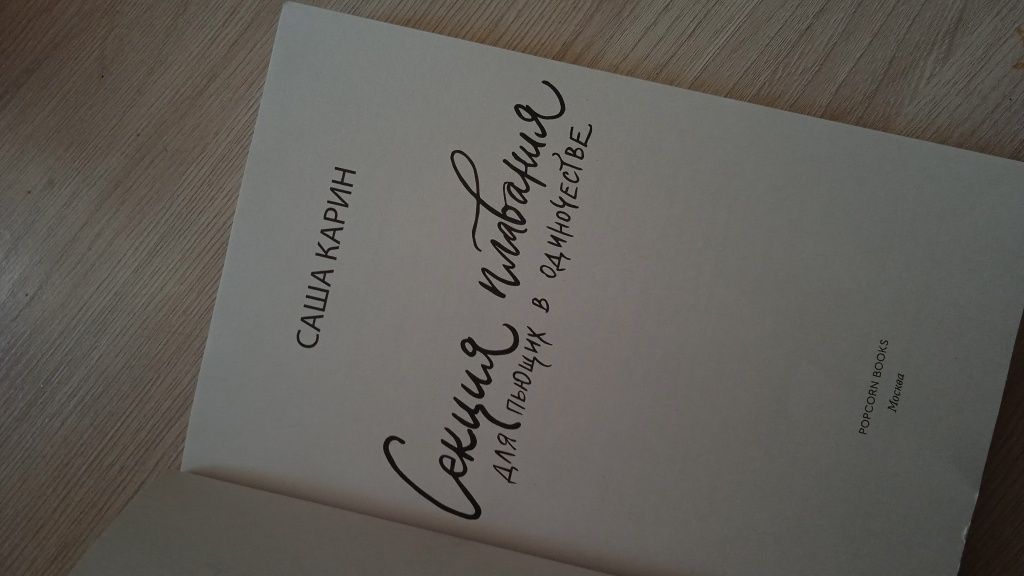 САША КАРИН
Секция плавания
для пьющих в одиночестве
POPCORN BOOKS
Москва